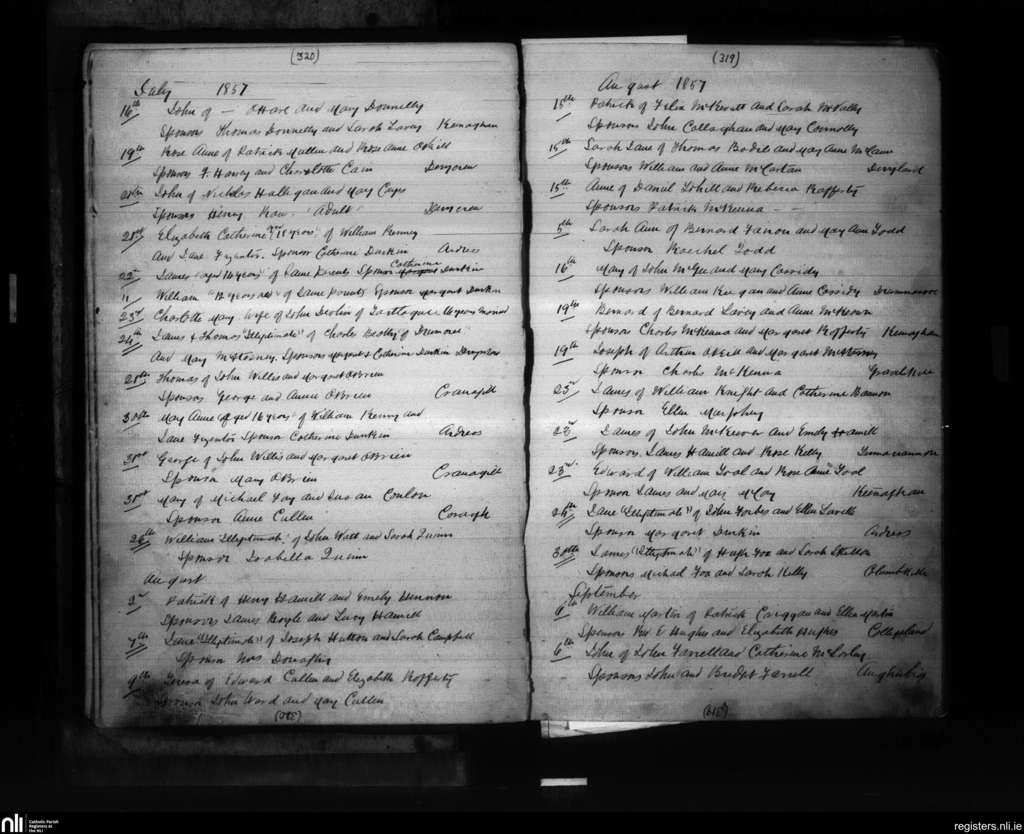 (320)
July 1857
16th John of — O'Hare and Mary Donnelly
Sponsors Thomas Donnelly and Sarah Lavey Keenaghan
19th Rose Anne of Patrick Mullen and Rose Anne O'Neill
Sponsors F. Haney and Charlotte Cain Derrycrew
John of Nicholas Halligan and Mary
Sponsor Henry "Adult" Derrycrew
21st Elizabeth Catherine 11 years of William Kenny
And Jane Sponsor Catherine Durkin Ardress
22nd James (aged 14 years) of same parents Sponsor Catherine Durkin
11 William "12 years old" of same parents Sponsor Margaret Durkin
23rd Charlotte Mary wife of John Devlin of
24th James & Thomas "Illegitimate" of Charles of
And Mary Sponsors Margaret & Catherine Durkin
28th Thomas of John Willis and Margaret O'Brien
Sponsors George and Annie O'Brien Cranagill
30th Mary Anne aged 16 years of William Kenny and
Jane Sponsor Catherine Durkin Ardress
31st George of John Willis and Margaret O'Brien
Sponsor Mary O'Brien Cranagill
31st Mary of Michael Foy and Susan Conlon
Sponsor Anne Cullen Coragh
26th William "Illegitimate" of John Watt and Sarah Quinn
Sponsor Isabella Quinn
August
2nd Patrick of Henry Hamill and Emely
Sponsors James Boyle and Lucy Hamill
7th Jane "Illegitimate" of Joseph Hutton and Sarah Campbell
Sponsor Mrs Donaghy
9th Teresa of Edward Cullen and Elizabeth Rafferty
Sponsors John Ward and Mary Cullen
(319)
August 1857
15th Patrick of Felix and Sarah McNally
Sponsors John Callaghan and Mary Connolly
15th Sarah Jane of Thomas and Mary Anne McCann
Sponsors William and Anne McCartan
15th Anne of Daniel and Rebecca Rafferty
Sponsors Patrick McKenna — —
5th Sarah Anne of Bernard Fanon and Mary Ann Todd
Sponsor Raechel Todd
16th Mary of John McGee and Mary Cassidy
Sponsors William Keegan and Anne Cassidy
19th Bernard of Bernard Lavey and Anne McKeown
Sponsors Charles McKenna and Margaret Rafferty Keenaghan
19th Joseph of Arthur O'Neill and Margaret
Sponsor Charles McKenna
23rd James of William Knight and Catherine Bannon
Sponsor Ellen Murphy
22nd James of John McKeever and Emely Hamill
Sponsors James Hamill and Rose Kelly Tamnamannon
23rd Edward of William Tool and Rose Anne Tool
Sponsor James and Mary McCoy Keenaghan
24th Jane "Illegitimate" of John Forbes and Ellen Lavelle
Sponsor Margaret Durkin Ardress
30th James "Illegitimate" of Hugh Fox and Sarah Skelton
Sponsors Michael Fox and Sarah Kelly
September
6th William Martin of Patrick Carrigan and Ellen Martin
Sponsors Rev E Hughes and Elizabeth Hughes Collegeland
6th John of John Farrell and Catherine McSorley
Sponsors John and Bridget Farrell
nli Catholic Parish
Registers at
the NLI
registers.nli.ie